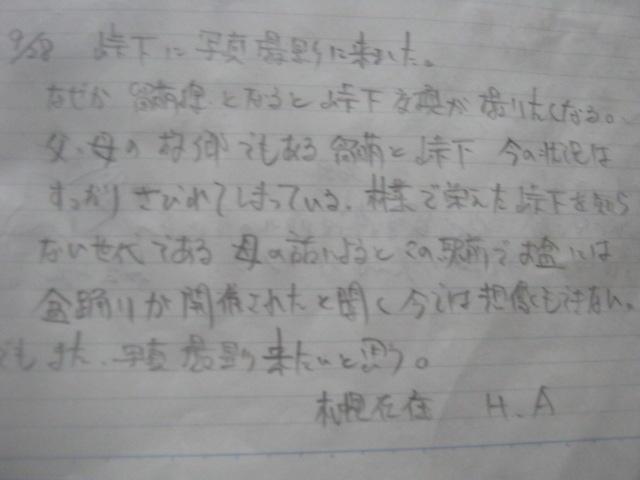 9/28 峠下に写真撮影に来ました。
なぜか 留萌線となると峠下交換が撮りたくなる。
父、母の故郷でもある 留萌と峠下 今の状況は
すっかりさびれてしまっている、林業で栄えた峠下を知ら
ない世代である 母の話によるとこの駅前でお盆には
盆踊りが開催されたと聞く 今では想像もできない。
でもまた、写真撮影に来たいと思う。
札幌在住 H.A